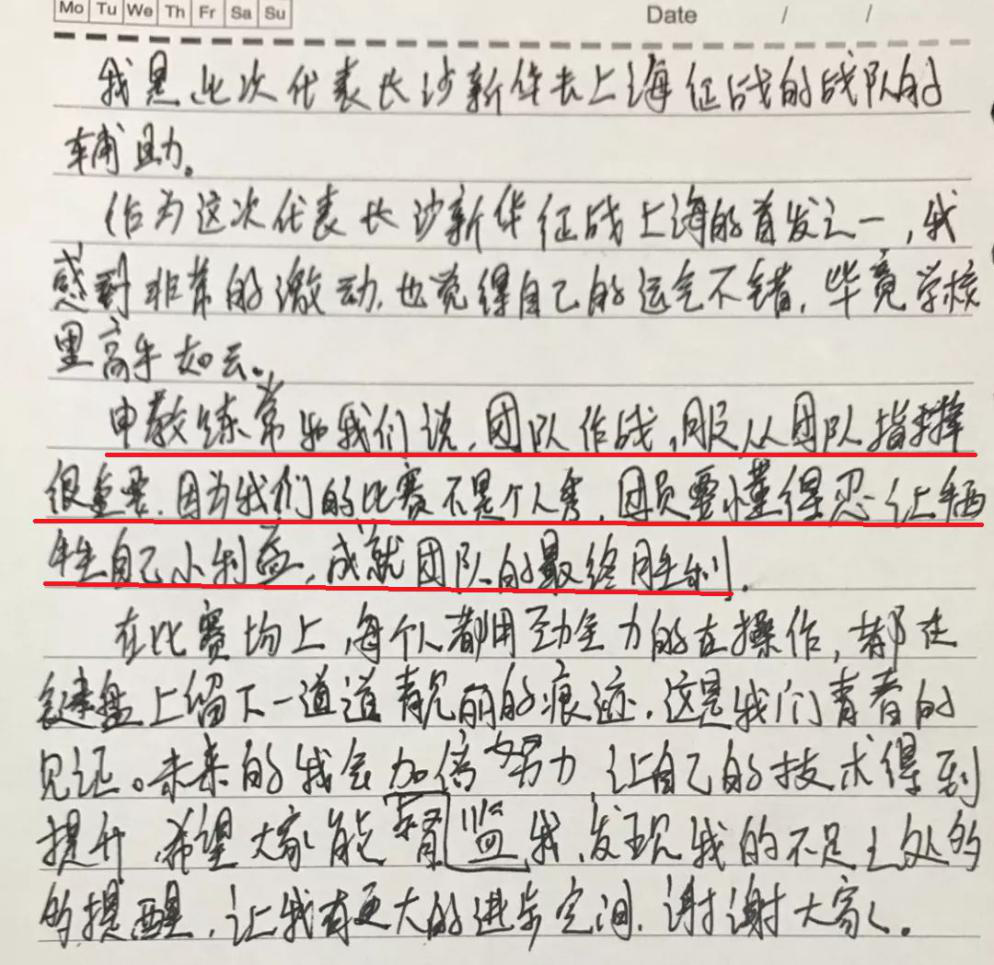 Mo Tu We Th Fr Sa Su
Date / /
我是此次代表长沙新华去上海征战的战队的
辅助。
作为这次代表长沙新华征战上海的首发之一,我
感到非常的激动,也觉得自己的运气不错,毕竟学校
里高手如云。
申教练常和我们说,团队作战,服从团队指挥
很重要,因为我们的比赛不是个人秀,团员要懂得忍让牺
牲自己小利益,成就团队的最终胜利.
在比赛场上,每个人都用劲全力的在操作,都在
键盘上留下一道道靓丽的痕迹,这是我们青春的
见证。未来的我会加倍努力 让自己的技术得到
提升,希望大家能督监我,发现我的不足之处的
的提醒,让我有更大的进步空间,谢谢大家.